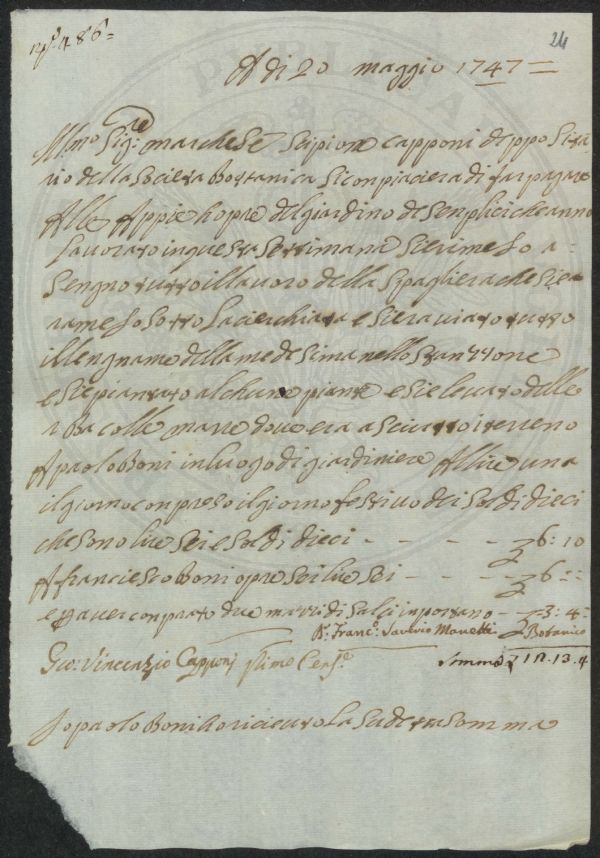 24
A di 20 maggio 1747
Ill.mo Sig.re marchese Scipione Capponi deppositta
rio della Societa Bottanica Si conpiaciera di far pagare
Alle Appie hopre del giardino de Senplici che anno
lavorato in questa Settimana Si e rimeso a
Sengno tutto il lavoro della Spagliera che Si e
rameso Sotto la cierchiata e Si e raviato tutto
il lengname della medesima nello Stanzzone
e Si e piantato alchune piante e Si e levato delle
erba colle marre dove era asciutto il terreno
A paolo Boni in luogo di giardiniere A llire una
il giorno conpreso il giorno festivo dei Soldi dieci
che Sono lire Sei e Soldi dieci - - - - - 6: 10
A franciesco Boni opre Sei lire Sei - - - - 6: :
e per aver conprato due mazzi di Salci inportano - - 3: 4
D.r Franc.o Saverio Manetti Botanico
Gio: Vincenzio Capponi Primo Cens.e
Somma 13. 4
Io paolo Boni ho riceuto la Sudetta Somma